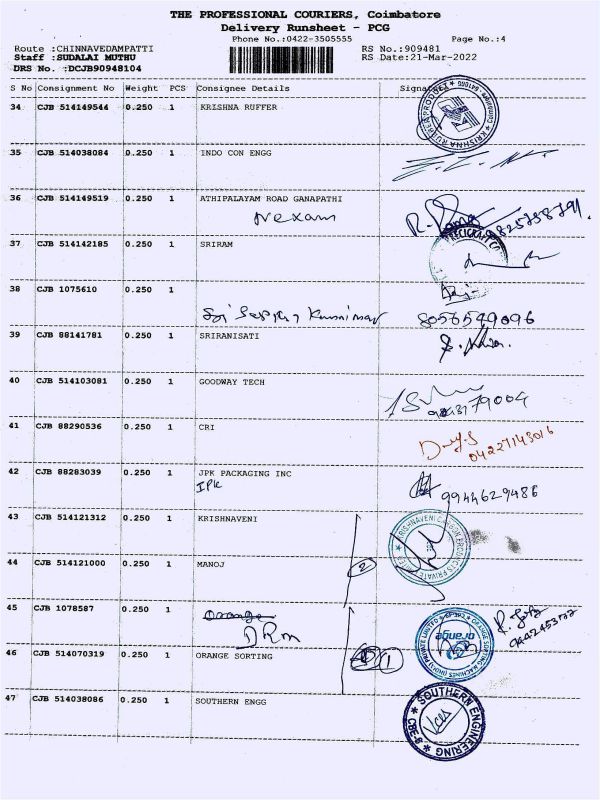 THE PROFESSIONAL COURIERS, Coimbatore
Delivery Runsheet - PCG
Phone No.:0422-3505555 Page No.:4
Route :CHINNAVEDAMPATTI RS No.:909481
Staff :SUDALAI MUTHU RS Date:21-Mar-2022
DRS No. :DCJB90948104
S No Consignment No Weight PCS Consignee Details Signature
34 CJB 514149544 0.250 1 KRISHNA RUFFER
35 CJB 514038084 0.250 1 INDO CON ENGG
36 CJB 514149519 0.250 1 ATHIPALAYAM ROAD GANAPATHI
Nexam
37 CJB 514142185 0.250 1 SRIRAM
PRECICRAFT
38 CJB 1075610 0.250 1
8056549096
39 CJB 88141781 0.250 1 SRIRANISATI
40 CJB 514103081 0.250 1 GOODWAY TECH
41 CJB 88290536 0.250 1 CRI
04227143016
42 CJB 88283039 0.250 1 JPK PACKAGING INC
IPK 9944629486
43 CJB 514121312 0.250 1 KRISHNAVENI
KRISHNAVENI CARBON PRODUCTS PRIVATE LIMITED
44 CJB 514121000 0.250 1 MANOJ
2
45 CJB 1078587 0.250 1 Orange
DRM
orange
46 CJB 514070319 0.250 1 ORANGE SORTING
1
ORANGE SORTING MACHINES (INDIA) PRIVATE LIMITED
47 CJB 514038086 0.250 1 SOUTHERN ENGG
SOUTHERN ENGINEERING CBE-6